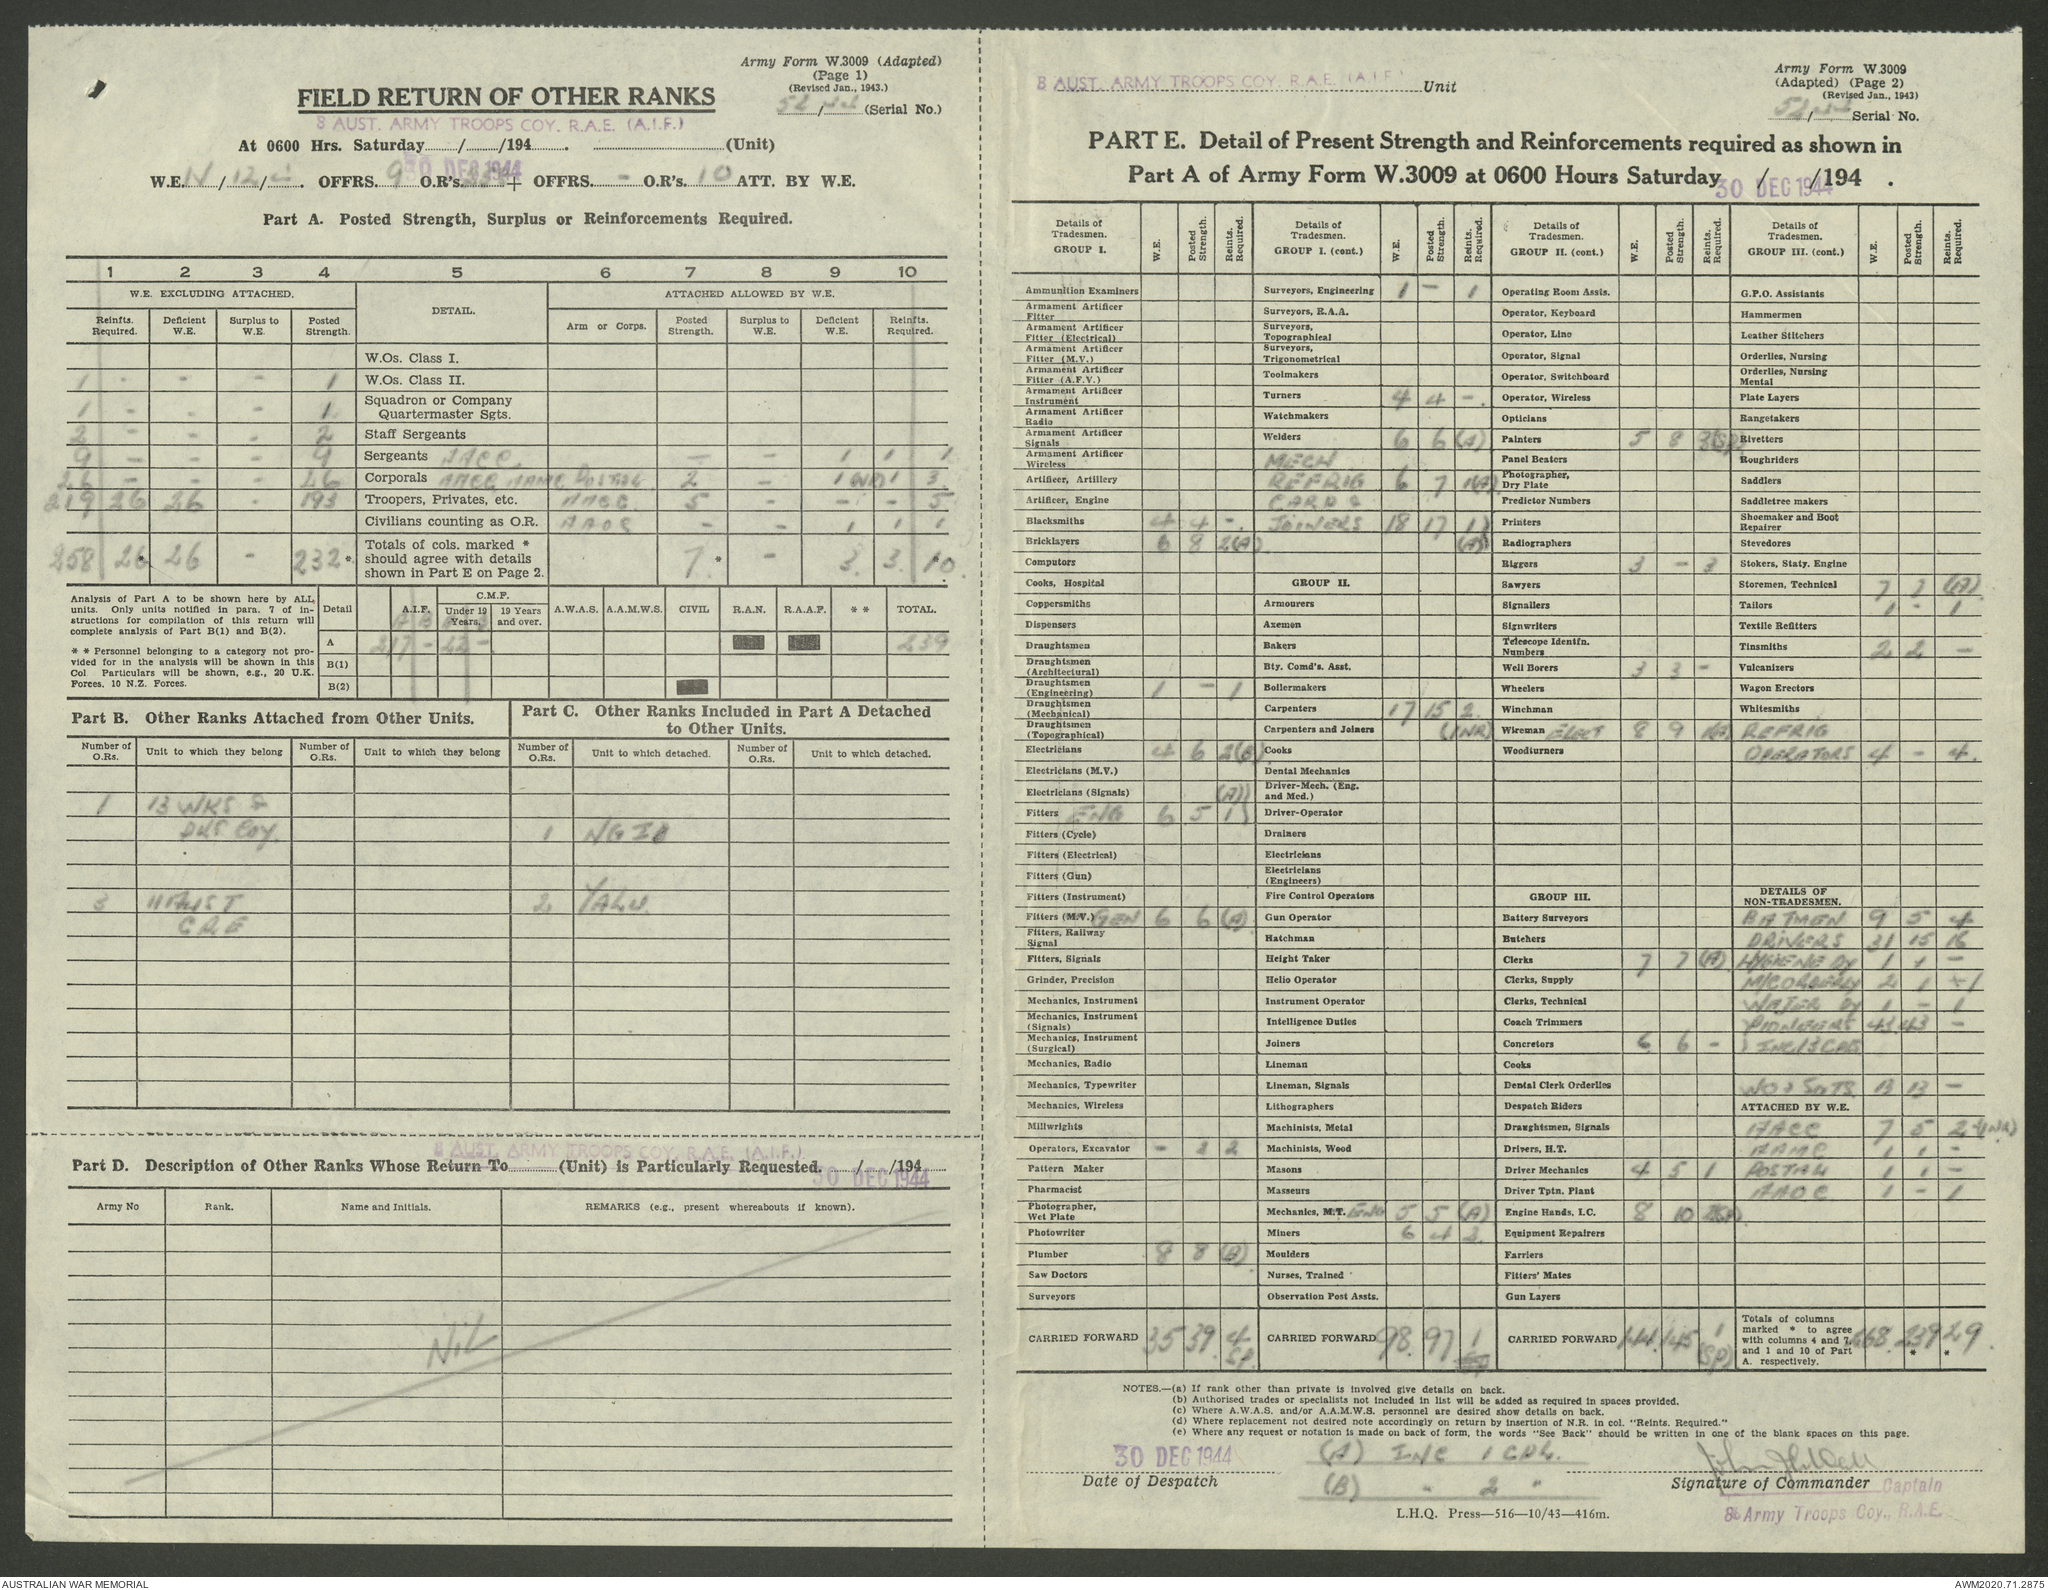 Army Form W.3009 (Adapted)
(Page 1)
(Revised Jan., 1943.)
52/44 (Serial No.)
FIELD RETURN OF OTHER RANKS
8 AUST. ARMY TROOPS COY. R.A.E. (A.I.F.)
At 0600 Hrs. Saturday / /194 . (Unit)
30 DEC 1944
W.E. IV/12/ . OFFRS. 9 O.R's. + OFFRS. - O.R's. 10 ATT. BY W.E.
Part A. Posted Strength, Surplus or Reinforcements Required.
1 2 3 4 5 6 7 8 9 10
W.E. EXCLUDING ATTACHED. DETAIL. ATTACHED ALLOWED BY W.E.
Reinfts. Required. Deficient W.E. Surplus to W.E. Posted Strength. Arm or Corps. Posted Strength. Surplus to W.E. Deficient W.E. Reinfts. Required.
W.Os. Class I.
1 - - - 1 W.Os. Class II.
1 - - - 1 Squadron or Company Quartermaster Sgts.
2 - - - 2 Staff Sergeants
9 - - - 9 Sergeants AACC - - 1 1 1
26 - - - 26 Corporals AACC AAMC POSTAL 2 - 1 (NR) 1 3
219 26 26 - 193 Troopers, Privates, etc. AACC 5 - - - 5
Civilians counting as O.R. AAOC - - 1 1 1
258 26 26 - 232* Totals of cols. marked * should agree with details shown in Part E on Page 2. 7* - 3 3 10
Analysis of Part A to be shown here by ALL units. Only units notified in para. 7 of instructions for compilation of this return will complete analysis of Part B(1) and B(2).
* * Personnel belonging to a category not provided for in the analysis will be shown in this Col Particulars will be shown, e.g., 20 U.K. Forces, 10 N.Z. Forces.
Detail A.I.F. C.M.F. Under 19 Years. 19 Years and over. A.W.A.S. A.A.M.W.S. CIVIL R.A.N. R.A.A.F. * * TOTAL.
A B A B
A 217 - 22 - 239
B(1)
B(2)
Part B. Other Ranks Attached from Other Units.
Part C. Other Ranks Included in Part A Detached to Other Units.
Number of O.Rs. Unit to which they belong Number of O.Rs. Unit to which they belong Number of O.Rs. Unit to which detached. Number of O.Rs. Unit to which detached.
1 13 WKS &
PKS COY. 1
3 11 AUST 2 YALU.
CRE
8 AUST. ARMY TROOPS COY. R.A.E. (A.I.F.)
Part D. Description of Other Ranks Whose Return To (Unit) is Particularly Requested. / /194
30 DEC 1944
Army No Rank. Name and Initials. REMARKS (e.g., present whereabouts if known).
Nil
8 AUST. ARMY TROOPS COY. R.A.E. (A.I.F.) Unit
Army Form W.3009
(Adapted) (Page 2)
(Revised Jan., 1943)
52/44 Serial No.
PART E. Detail of Present Strength and Reinforcements required as shown in
Part A of Army Form W.3009 at 0600 Hours Saturday / /194 .
30 DEC 1944
Details of Tradesmen. GROUP I. W.E. Posted Strength. Reints. Required.
Ammunition Examiners
Armament Artificer Fitter
Armament Artificer Fitter (Electrical)
Armament Artificer Fitter (M.V.)
Armament Artificer Fitter (A.F.V.)
Armament Artificer Instrument
Armament Artificer Radio
Armament Artificer Signals
Armament Artificer Wireless
Artificer, Artillery
Artificer, Engine
Blacksmiths 4 4 -
Bricklayers 6 8 2(A)
Computors
Cooks, Hospital
Coppersmiths
Dispensers
Draughtsmen
Draughtsmen (Architectural)
Draughtsmen (Engineering) 1 - 1
Draughtsmen (Mechanical)
Draughtsmen (Topographical)
Electricians 4 6 2(B)
Electricians (M.V.)
Electricians (Signals) (A)
Fitters ENG 6 5 1
Fitters (Cycle)
Fitters (Electrical)
Fitters (Gun)
Fitters (Instrument)
Fitters (M.V.) GEN 6 6 (A)
Fitters, Railway Signal
Fitters, Signals
Grinder, Precision
Mechanics, Instrument
Mechanics, Instrument (Signals)
Mechanics, Instrument (Surgical)
Mechanics, Radio
Mechanics, Typewriter
Mechanics, Wireless
Millwrights
Operators, Excavator - 2 2
Pattern Maker
Pharmacist
Photographer, Wet Plate
Photowriter
Plumber 8 8 (B)
Saw Doctors
Surveyors
CARRIED FORWARD 35 39 4 SP.
Details of Tradesmen. GROUP I. (cont.) W.E. Posted Strength. Reints. Required.
Surveyors, Engineering 1 - 1
Surveyors, R.A.A.
Surveyors, Topographical
Surveyors, Trigonometrical
Toolmakers
Turners 4 4 -
Watchmakers
Welders 6 6 (A)
MECH
REFRIG 6 7 1(A)
CARPS &
JOINERS 18 17 1
(A)
GROUP II.
Armourers
Axemen
Bakers
Bty. Comd's. Asst.
Boilermakers
Carpenters 17 15 2
Carpenters and Joiners (1NR)
Cooks
Dental Mechanics
Driver-Mech. (Eng. and Med.)
Driver-Operator
Drainers
Electricians
Electricians (Engineers)
Fire Control Operators
Gun Operator
Hatchman
Height Taker
Helio Operator
Instrument Operator
Intelligence Duties
Joiners
Lineman
Lineman, Signals
Lithographers
Machinists, Metal
Machinists, Wood
Masons
Masseurs
Mechanics, M.T. ENG 5 5 (A)
Miners 6 4 2
Moulders
Nurses, Trained
Observation Post Assts.
CARRIED FORWARD 98 97 1
Details of Tradesmen. GROUP II. (cont.) W.E. Posted Strength. Reints. Required.
Operating Room Assts.
Operator, Keyboard
Operator, Line
Operator, Signal
Operator, Switchboard
Operator, Wireless
Opticians
Painters 5 8 3(SP)
Panel Beaters
Photographer, Dry Plate
Predictor Numbers
Printers
Radiographers
Riggers 3 - 3
Sawyers
Signallers
Signwriters
Telescope Identfn. Numbers
Well Borers 3 3 -
Wheelers
Winchman
Wireman ELECT 8 9 1(A)
Woodturners
GROUP III.
Battery Surveyors
Butchers
Clerks 7 7 (A)
Clerks, Supply
Clerks, Technical
Coach Trimmers
Concretors 6 6 -
Cooks
Dental Clerk Orderlies
Despatch Riders
Draughtsmen, Signals
Drivers, H.T.
Driver Mechanics 4 5 1
Driver Tptn. Plant
Engine Hands, I.C. 8 10
Equipment Repairers
Farriers
Fitters' Mates
Gun Layers
CARRIED FORWARD 144 145 1 (SP)
Details of Tradesmen. GROUP III. (cont.) W.E. Posted Strength. Reints. Required.
G.P.O. Assistants
Hammermen
Leather Stitchers
Orderlies, Nursing
Orderlies, Nursing Mental
Plate Layers
Rangetakers
Rivetters
Roughriders
Saddlers
Saddletree makers
Shoemaker and Boot Repairer
Stevedores
Stokers, Staty. Engine
Storemen, Technical 7 7 (A)
Tailors 1 - 1
Textile Refitters
Tinsmiths 2 2 -
Vulcanizers
Wagon Erectors
Whitesmiths
REFRIG
OPERATORS 4 - 4
DETAILS OF NON-TRADESMEN.
BATMEN 9 5 4
DRIVERS 31 15 16
HYGIENE DY 1 1 -
M/C ORDERLY 2 1 1
WATER DY 1 - 1
PIONEERS 43 43 -
INC 13 CPLS
WO & SGTS 13 13 -
ATTACHED BY W.E.
AACC 7 5 2 (1NR)
AAMC 1 1 -
POSTAL 1 1 -
AAOC 1 - 1
Totals of columns marked * to agree with columns 4 and 7, and 1 and 10 of Part A. respectively. 268 239* 29*
NOTES.—(a) If rank other than private is involved give details on back.
(b) Authorised trades or specialists not included in list will be added as required in spaces provided.
(c) Where A.W.A.S. and/or A.A.M.W.S. personnel are desired show details on back.
(d) Where replacement not desired note accordingly on return by insertion of N.R. in col. "Reints. Required."
(e) Where any request or notation is made on back of form, the words "See Back" should be written in one of the blank spaces on this page.
30 DEC 1944
Date of Despatch
(A) INC 1 CPL.
(B) " 2 "
Signature of Commander
Captain
8 Army Troops Coy., R.A.E.
L.H.Q. Press—516—10/43—416m.
AUSTRALIAN WAR MEMORIAL
AWM2020.71.2875